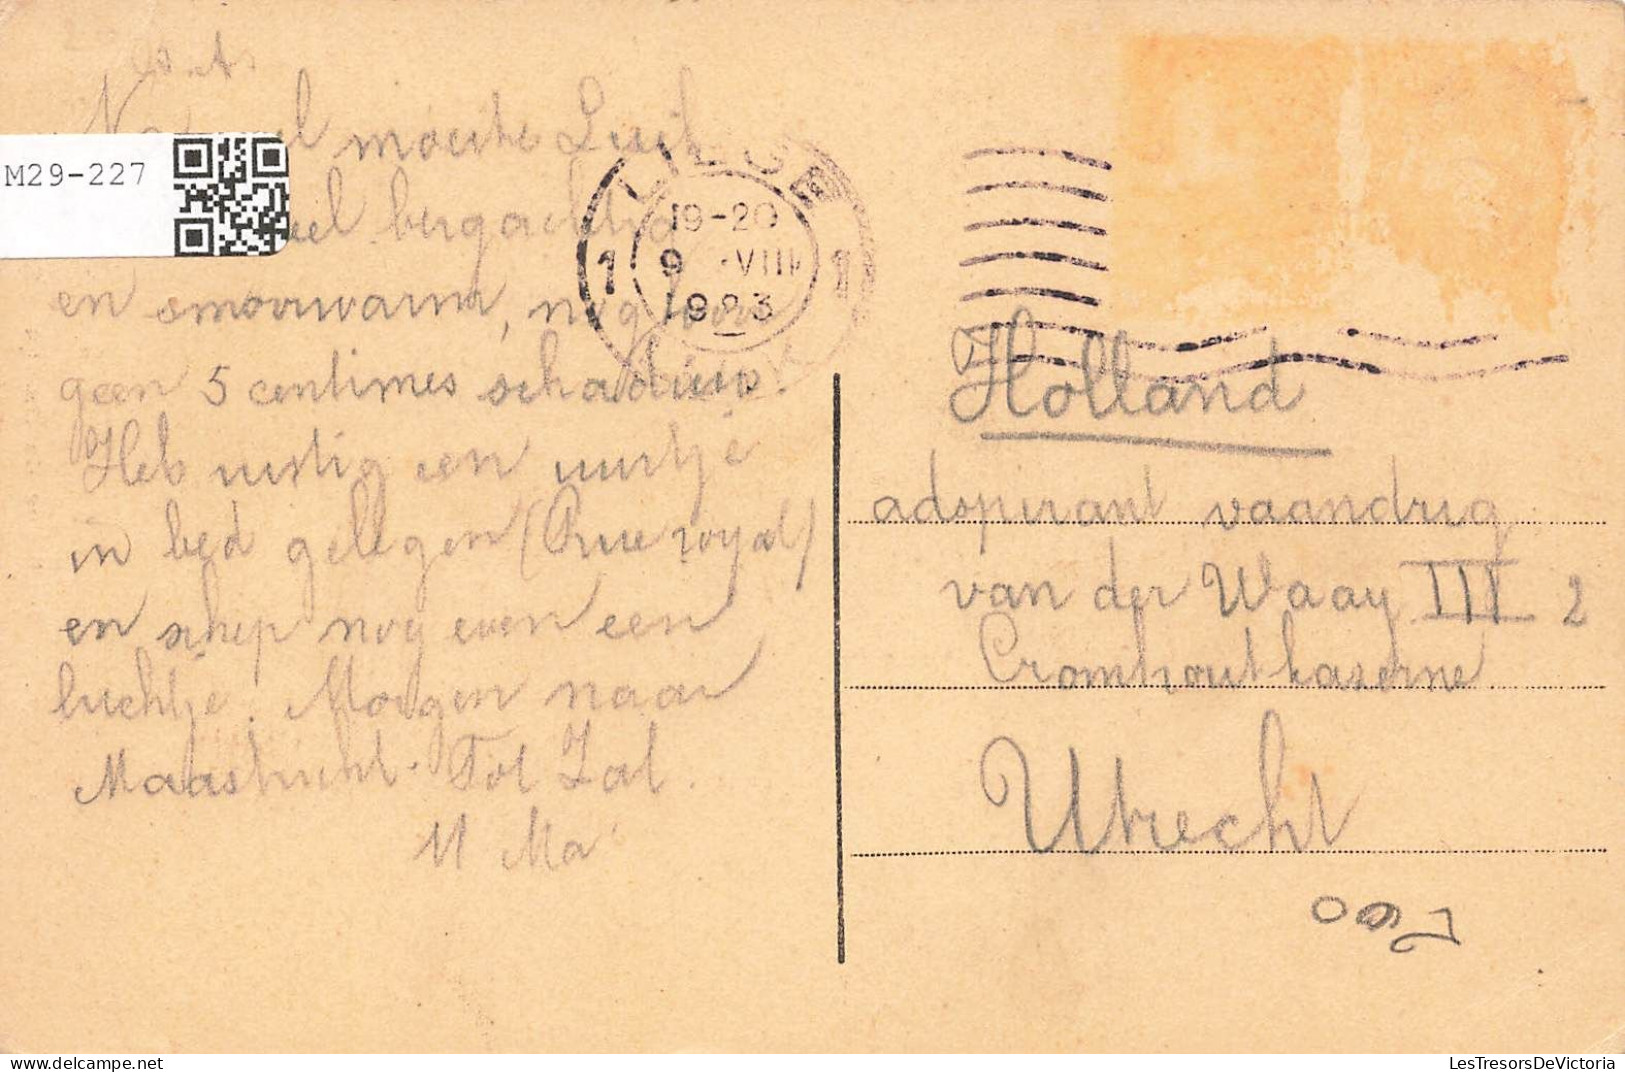 M29-227
moeite Luik
bergachtig
en smoorwarm, nog voor
geen 5 centimes schaduw!
Heb rustig een uurtje
in bed gelegen (Rue royal)
en schep nog even een
luchtje. Morgen naar
Maastricht. Tot Zat.
LIEGE
1 1
19-20
9 VIII
1923
Holland
adspirant vaandrig
van der Waay III 2
Cromhoutkaserne
Utrecht
LesTresorsDeVictoria